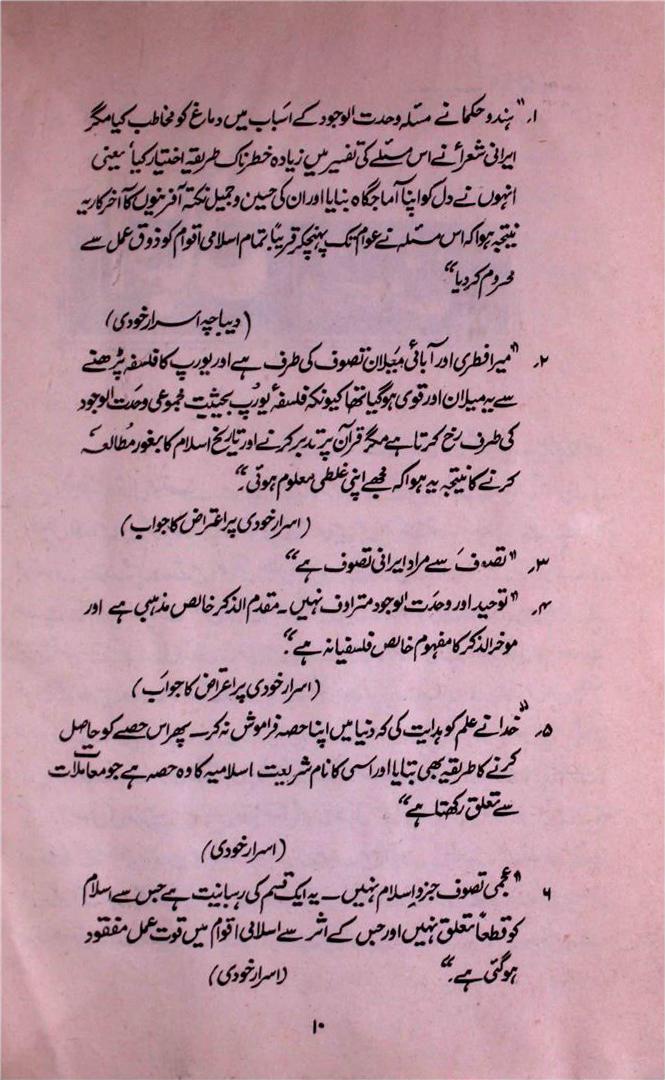 ۱۔ "ہندو حکما نے مسئلہ وحدت الوجود کے اسباب میں دماغ کو مخاطب کیا مگر
ایرانی شعراٗ نے اس مسئلے کی تفسیر میں زیادہ خطرناک طریقہ اختیار کیا یعنی
انہوں نے دل کو اپنا آماجگاہ بنایا اور ان کی حسین و جمیل نکتہ آفرینیوں کا آخر کار یہ
نتیجہ ہوا کہ اس مسئلہ نے عوام تک پہنچکر قریباً تمام اسلامی اقوام کو ذوق عمل سے
محروم کر دیا"
(دیباچہ اسرار خودی)
۲۔ "میرا فطری اور آبائی میلان تصوف کی طرف ہے اور یورپ کا فلسفہ پڑھنے
سے یہ میلان اور قوی ہو گیا تھا کیونکہ فلسفۂ یورپ بحیثیت مجموعی وحدت الوجود
کی طرف رخ کرتا ہے مگر قرآن پر تدبر کرنے اور تاریخ اسلام کا بغور مطالعہ
کرنے کا نتیجہ یہ ہوا کہ مجھے اپنی غلطی معلوم ہوئی۔"
(اسرار خودی پر اعتراض کا جواب)
۳۔ "تصوف سے مراد ایرانی تصوف ہے"
۴۔ "توحید اور وحدت الوجود مترادف نہیں۔ مقدم الذکر خالص مذہبی ہے اور
موخر الذکر کا مفہوم خالص فلسفیانہ ہے۔"
(اسرار خودی پر اعتراض کا جواب)
۵۔ "خدا نے علم کو ہدایت کی کہ دنیا میں اپنا حصہ فراموش نہ کر۔ پھر اس حصے کو حاصل
کرنے کا طریقہ بھی بتایا اور اسی کا نام شریعت اسلامیہ کا وہ حصہ ہے جو معاملات
سے تعلق رکھتا ہے"
(اسرار خودی)
۶ "عجمی تصوف جزو اسلام نہیں۔ یہ ایک قسم کی رہبانیت ہے جس سے اسلام
کو قطعاً تعلق نہیں اور جس کے اثر سے اسلامی اقوام میں قوت عمل مفقود
ہو گئی ہے۔" (اسرار خودی)
۱۰